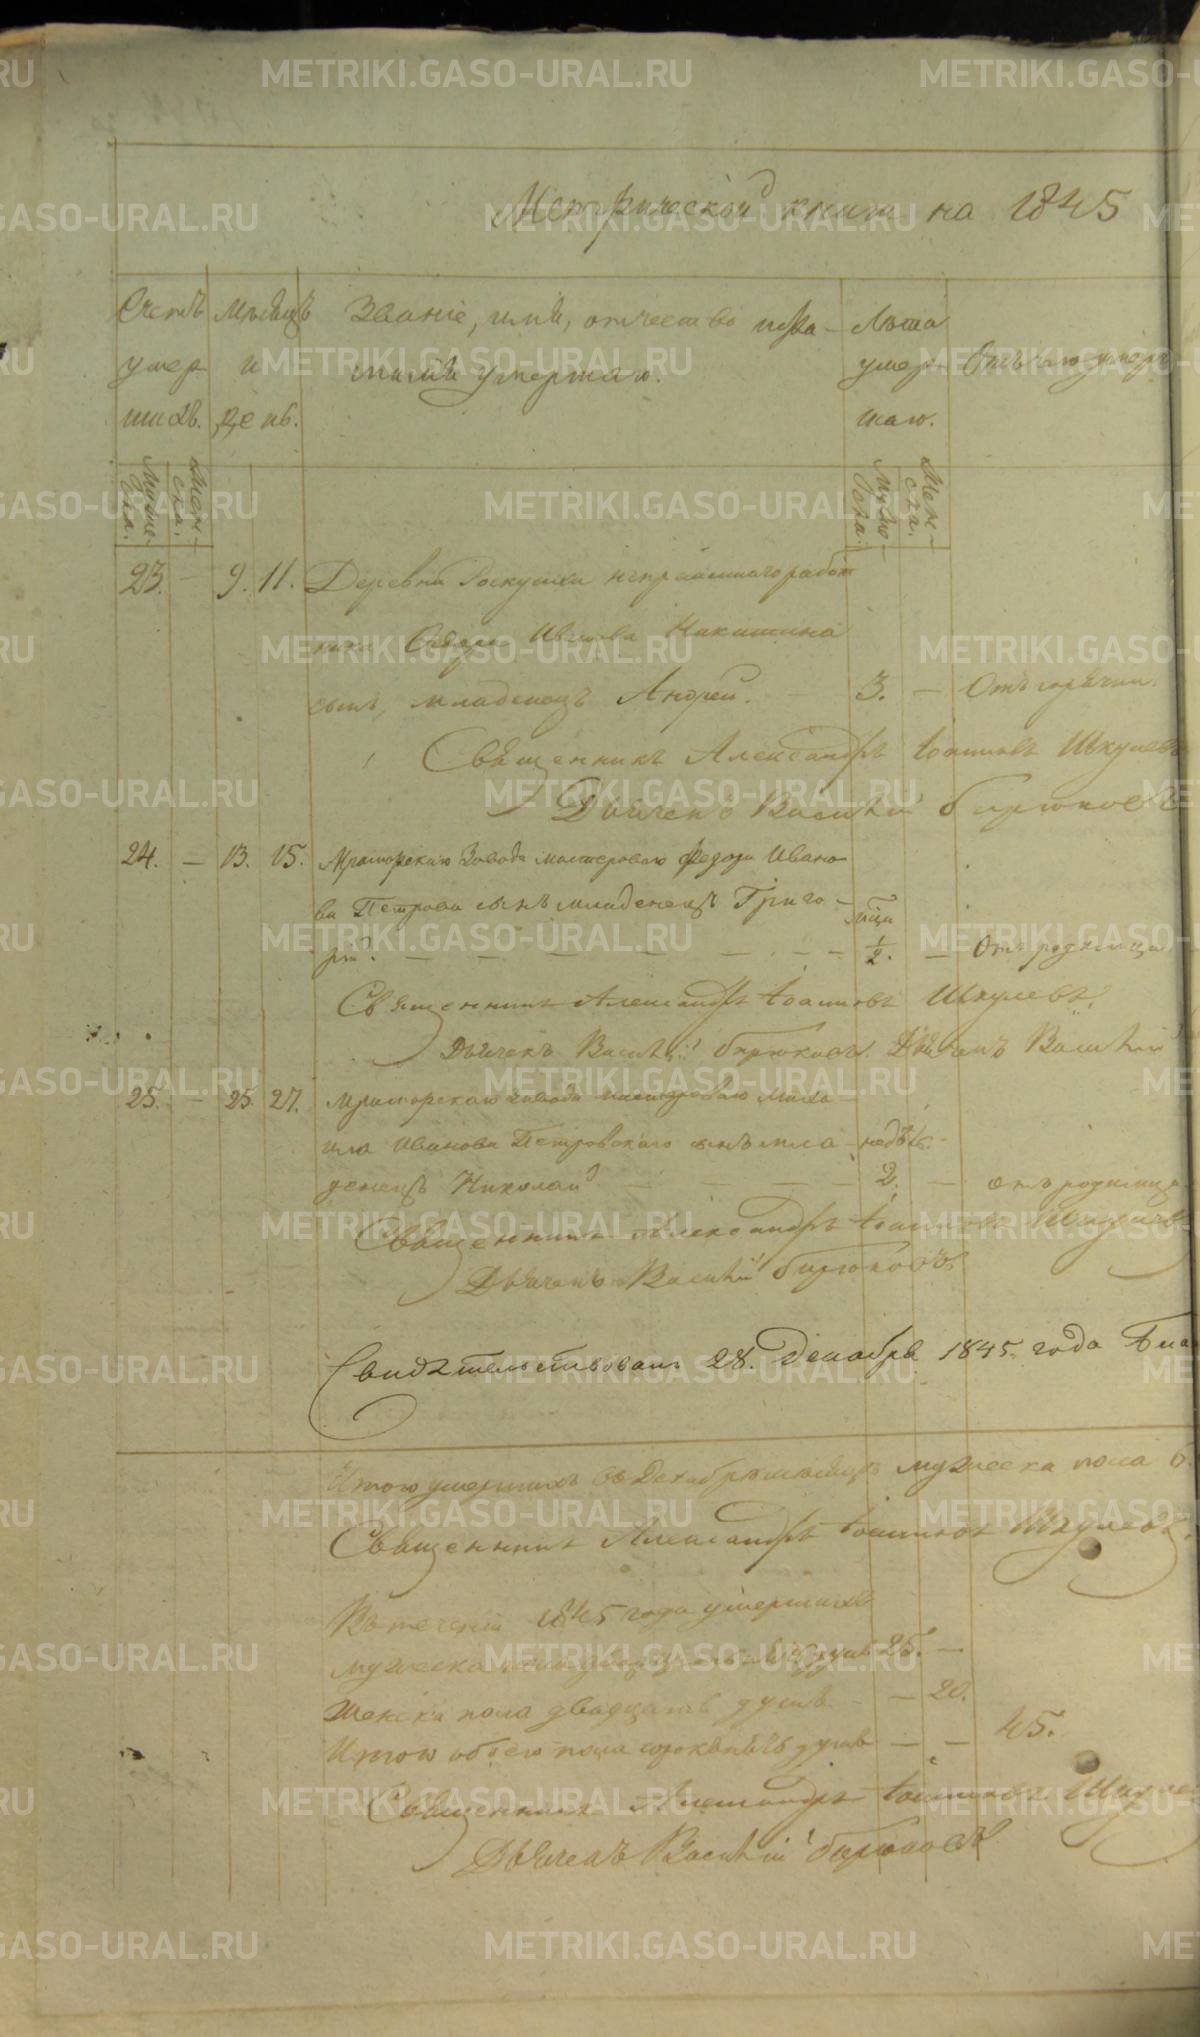 Метрической книги на 1845
Счетъ умер шихъ.
Мужеска.
Женска.
Мѣсяцъ и день.
Званіе, имя, отчество и фа-
милія умершаго.
Лѣта умер шаго.
Мужеска.
Женска.
Отъ чего умеръ
23. — 9. 11. Деревни непремѣннаго работ
ника Ивана Никитина
сынъ, младенецъ Андрей. — 3. — Отъ горячки.
Священникъ Александръ Іоанновъ Шкулевъ
Дьячекъ Василій Бирюковъ
24. — 13. 15. Мраморскаго завода мастероваго Федора Ивано
ва Петрова сынъ младенецъ Григо-
рій. — — — — 1/2. — Отъ родимца.
Священникъ Александръ Іоанновъ Шкулевъ.
Дьячекъ Василій Бирюковъ. Дьячекъ Василій
25. — 25 27. Мраморскаго завода мастероваго Миха-
ила Иванова Петровскаго сынъ мла- недѣль.
денецъ Николай — — — — 2. — отъ родимца
Священникъ Александръ Іоанновъ Шкулевъ
Дьячекъ Василій Бирюковъ
Свидѣтельствовалъ 28. Декабря 1845. года
Итого умершихъ въ Декабрѣ мѣсяцѣ мужеска пола 6.
Священникъ Александръ Іоанновъ Шкулевъ.
Въ теченіи 1845 года умершихъ
мужеска пола двадцать пять душъ 25. —
Женска пола двадцать душъ. — — 20.
Итого обоего пола сорокъ пять душъ — — 45.
Священникъ Александръ Іоанновъ Шкуле
Дьячекъ Василій Бирюковъ
METRIKI.GASO-URAL.RU